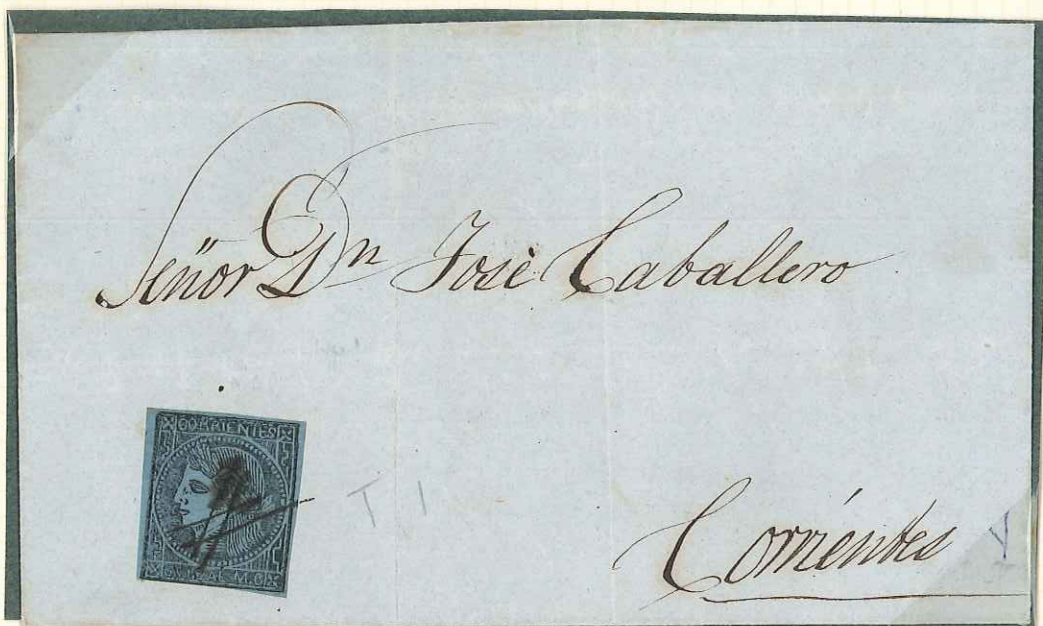 Señor Dn José Caballero
CORRIENTES
M.C.
T 1
Corrientes